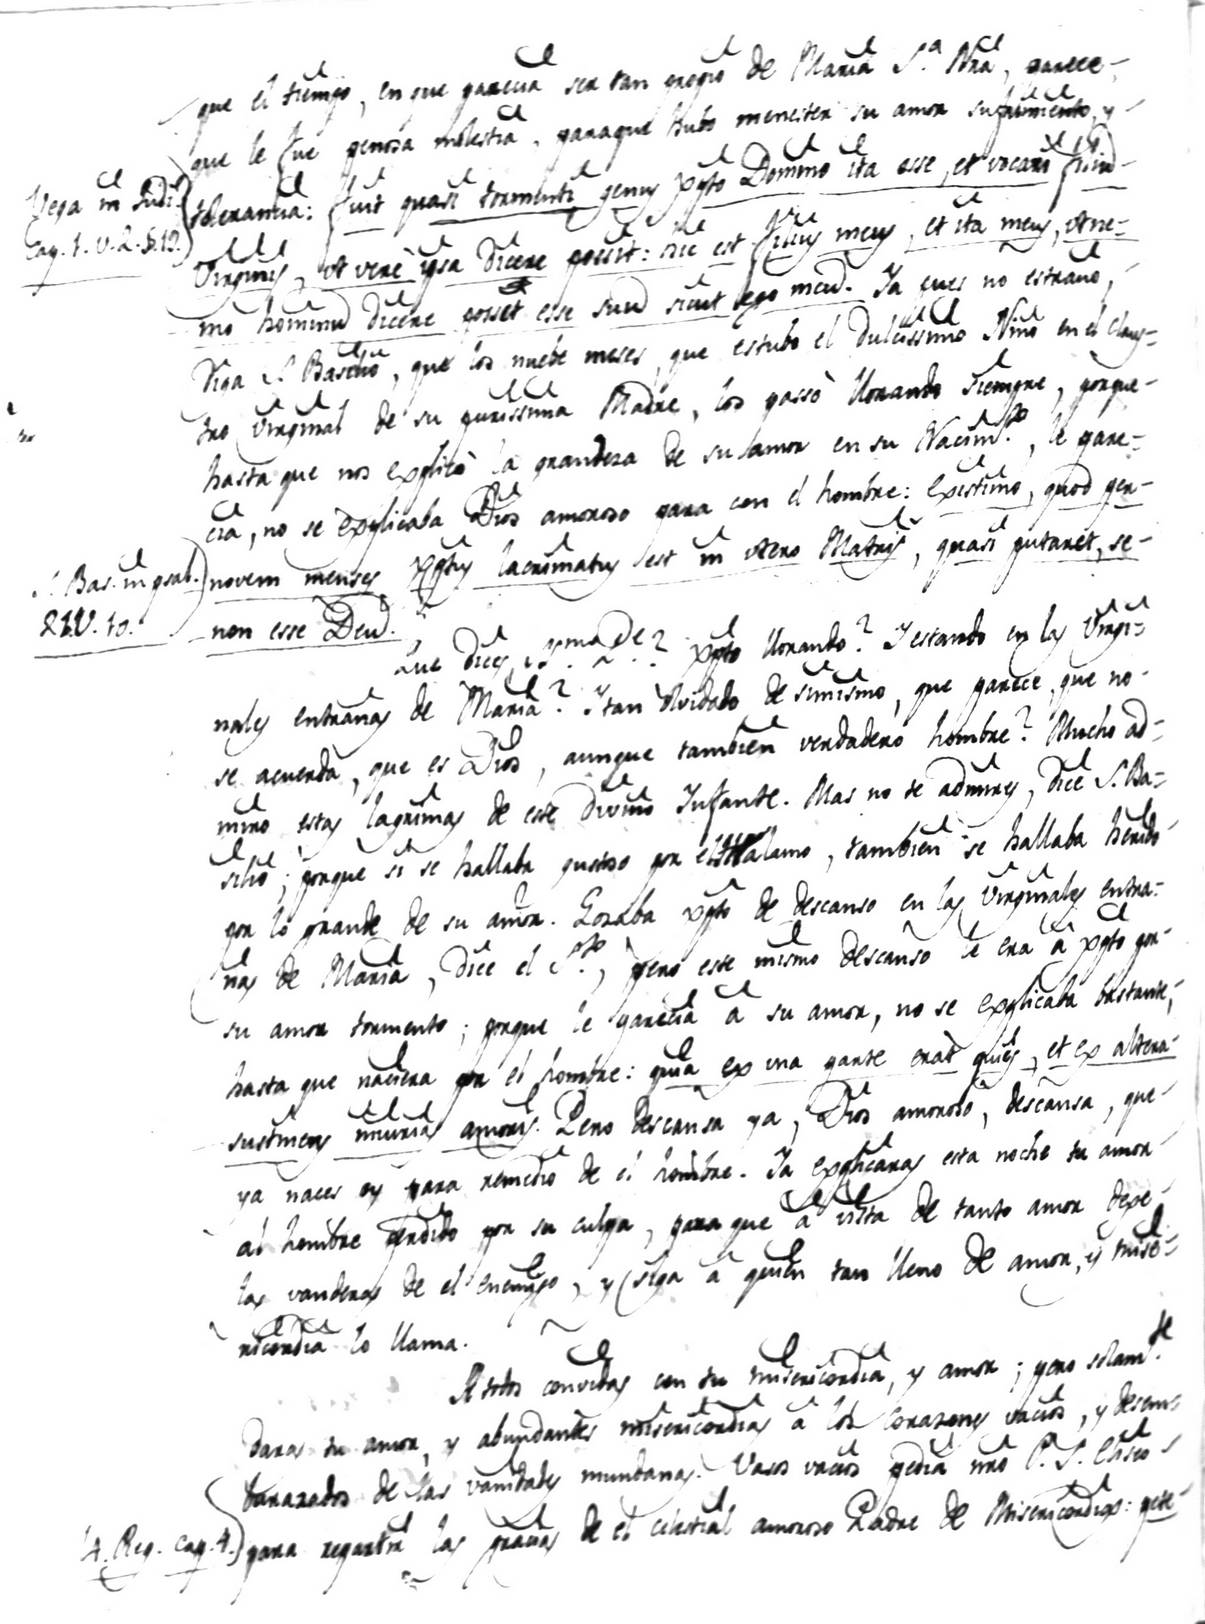 que el tiempo, en que parecia ser tan propio de Maria S.ª Nrã, parece-
que le fue penosa molestia, paraque hubo menester su amor sufrimiento, y-
Vega in Judi. cap. 1. v. 2. §. 19.
tolerancia: fuit quasi tormenti genus xpto Domino ita esse, et vocari filiũ-
Virginis, vt verè ipsa dicere possit: sic est filius meus, et ita meus, vt ne-
mo hominũ dicere posset esse suũ sicut ego meũ. Ya pues no estraño,
diga S. Basilio, que los nuebe meses, que estubo el dulcissimo Niño en el claus-
tro virginal de su purissima Madre, los passò llorando siempre, porque-
hasta que nos explicò la grandeza de su amor en su Nacim.to, le pare-
cia, no se explicaba Dios amoroso para con el hombre: existimo, quod per-
S. Bas. in psal. 21. V. 10.
novem menses xptus lacrimatus est in vtero Matris, quasi putaret, se-
non esse Deũ.
Que dices, ? xpto llorando? Y estando en las Virgi-
nales entrañas de Maria? Y tan olvidado de simismo, que parece, que no-
se acuerda, que es Dios, aunque tambien verdadero hombre? Mucho ad-
miro estas lagrimas de este divino Infante. Mas no te admires, dice S. Ba-
silio; porque si se hallaba gustoso por el thalamo, tambien se hallaba herido
por lo grande de su amor. Gozaba xpto de descanso en las virginales entra-
ñas de Maria, dice el S.to, pero este mismo descanso le era à xpto por-
su amor tormento; porque le parecia à su amor, no se explicaba bastante,
hasta que naciera por el hombre: quia ex vna parte erat quies, et ex altera-
sustinens iniurias amoris. Pero descansa ya, Dios amoroso, descansa, que-
ya naces oy para remedio de el hombre. Ya explicaras esta noche tu amor
al hombre perdido por su culpa, para que à vista de tanto amor dexe-
las vanderas de el enemigo, y siga à quien tan lleno de amor, y mise-
ricordia lo llama.
A todos convidas con tu misericordia, y amor; pero solam.te
daras tu amor, y abundantes misericordias à los corazones vacios, y desem-
barazados de las vanidades mundanas. Vasos vacios pedia nrõ P. S. Eliseo
4. Reg. cap. 4.
para repartir las gracias de el celestial amoroso Padre de Misericordias: pete-